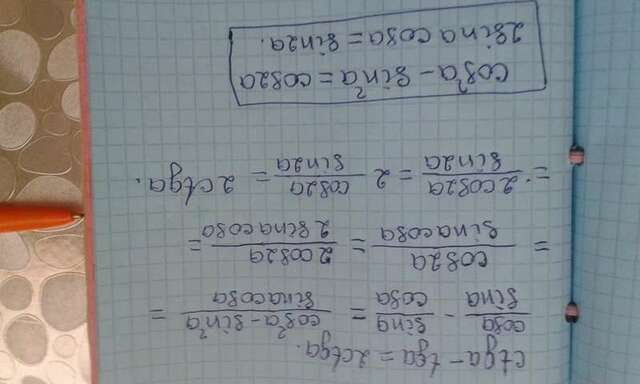 ctga - tga = 2ctga.
cosa/sina - sina/cosa = cos²a - sin²a/sinacosa =
= cos2a/sinacosa = 2cos2a/2sinacosa =
= 2cos2a/sin2a = 2 cos2a/sin2a = 2ctga.
cos²a - sin²a = cos2a
2sina cosa = sin2a.